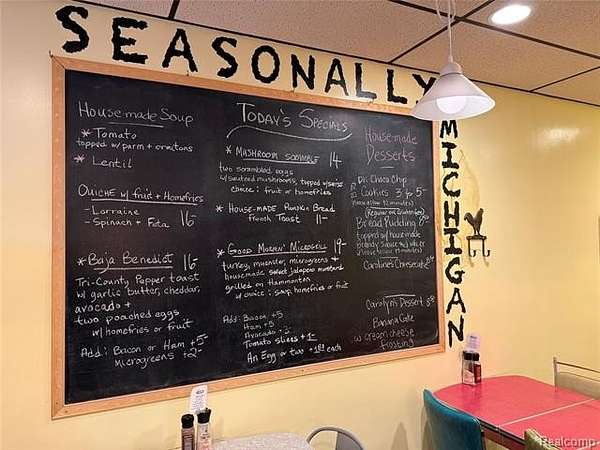 SEASONALLY
MICHIGAN
House-made Soup
* Tomato
topped w/ parm + croutons
* Lentil
QUICHE w/ fruit + Homefries
- Lorraine 16-
- Spinach + Feta
* Baja Benedict 16-
Tri-County Pepper toast
w/ garlic butter, cheddar,
avocado +
two poached eggs
w/ homefries or fruit
Add: Bacon or Ham +5-
Microgreens +2-
TODAY'S SPECIALS
* MUSHROOM SCRAMBLE 14
two scrambled eggs
w/ sauteed mushrooms, topped w/ swiss
choice: fruit or homefries
* HOUSE-MADE Pumpkin Bread
french Toast 11-
* GOOD MORNIN' MICROGRILL 19-
turkey, muenster, microgreens +
housemade sweet jalapeno mustard
grilled on Hammonton
w/ choice: soup, homefries or fruit
Add: Bacon +5
Ham +5
Avocado
Tomato slices +1-
An Egg or two each
House-made
Desserts
Choco Chip
Cookies 3 5-
Bread Pudding
topped w/ housemade
Caroline's Cheesecake
Carolyn's Dessert
Banana Cake
w cream cheese
frosting
Realcomp